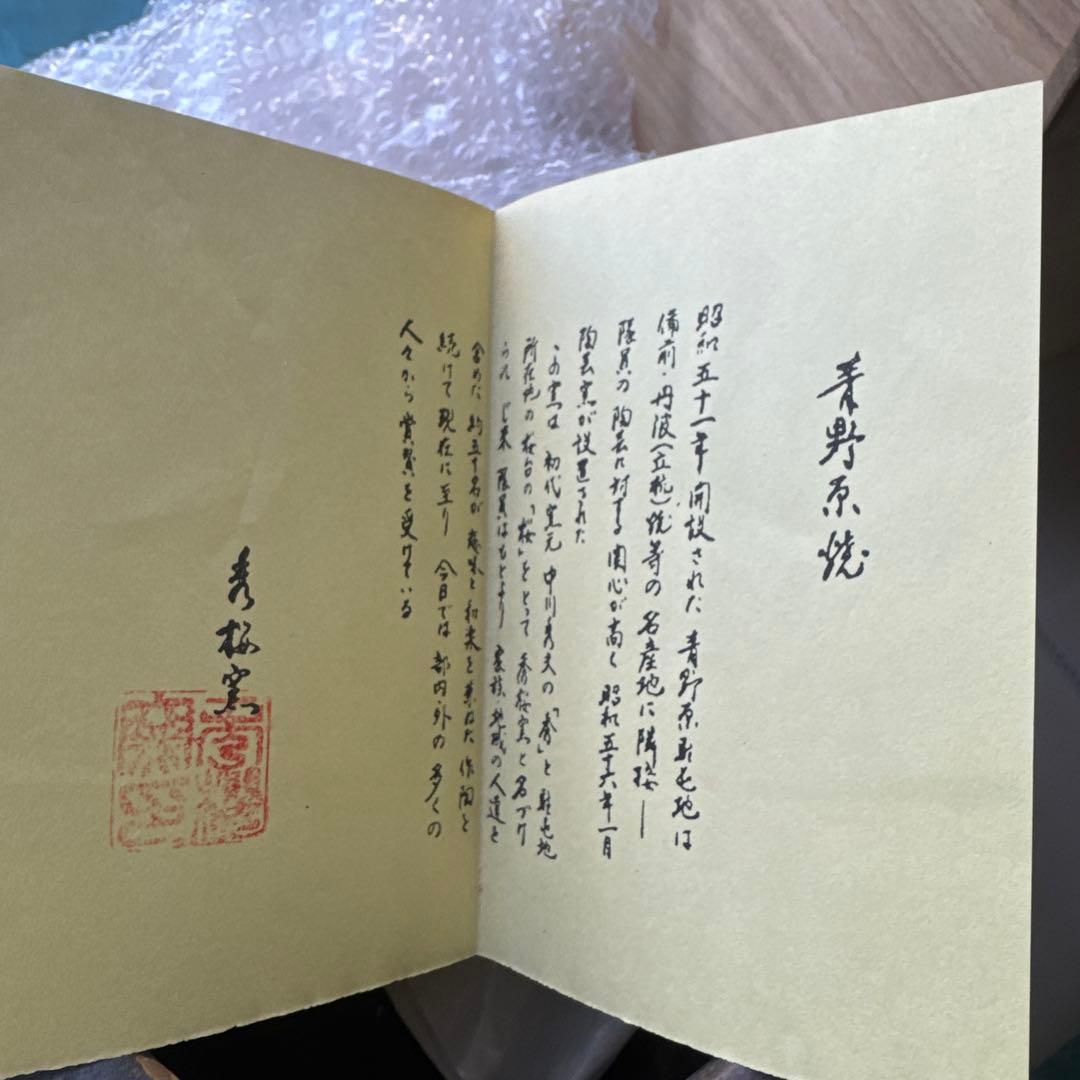 青野原焼
昭和五十一年 開設された 青野原駐屯地は
備前・丹波(立杭)焼等の 名産地に隣接—
隊員の 陶芸に対する 関心が高く 昭和五十六年一月
陶芸窯が設置された
この窯は 初代窯元 中川秀夫の「秀」と 駐屯地
所在地の 桜台の「桜」をとって 秀桜窯と名づけ
られ じ来 隊員はもとより 家族・地域の人達を
含めた 約五十名が 趣味と和楽を兼ねた 作陶を
続けて現在に至り 今日では 部内・外の 多くの
人々から 賞賛を受けている
秀桜窯